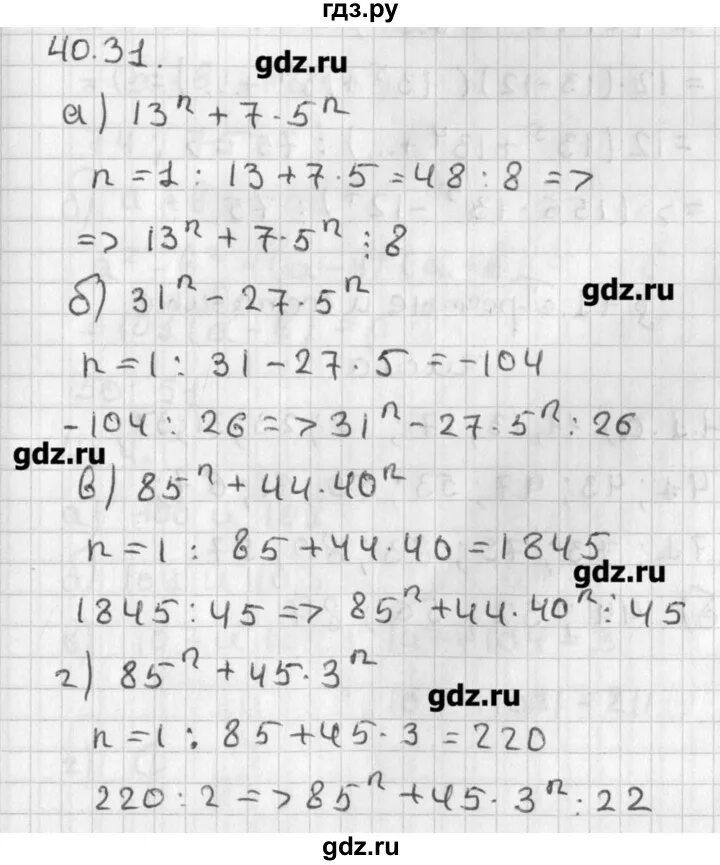 гдз.ру
40.31.
gdz.ru
а) 13ⁿ + 7·5ⁿ
n = 1 : 13 + 7·5 = 48 : 8 =>
=> 13ⁿ + 7·5ⁿ ⋮ 8
gdz.ru
б) 31ⁿ - 27·5ⁿ
n = 1 : 31 - 27·5 = -104
-104 : 26 => 31ⁿ - 27·5ⁿ : 26
gdz.ru
в) 85ⁿ + 44·40ⁿ
n = 1 : 85 + 44·40 = 1845
gdz.ru
1845 : 45 => 85ⁿ + 44·40ⁿ ⋮ 45
г) 85ⁿ + 45·3ⁿ
gdz.ru
n = 1 : 85 + 45·3 = 220
220 : 2 => 85ⁿ + 45·3ⁿ : 22